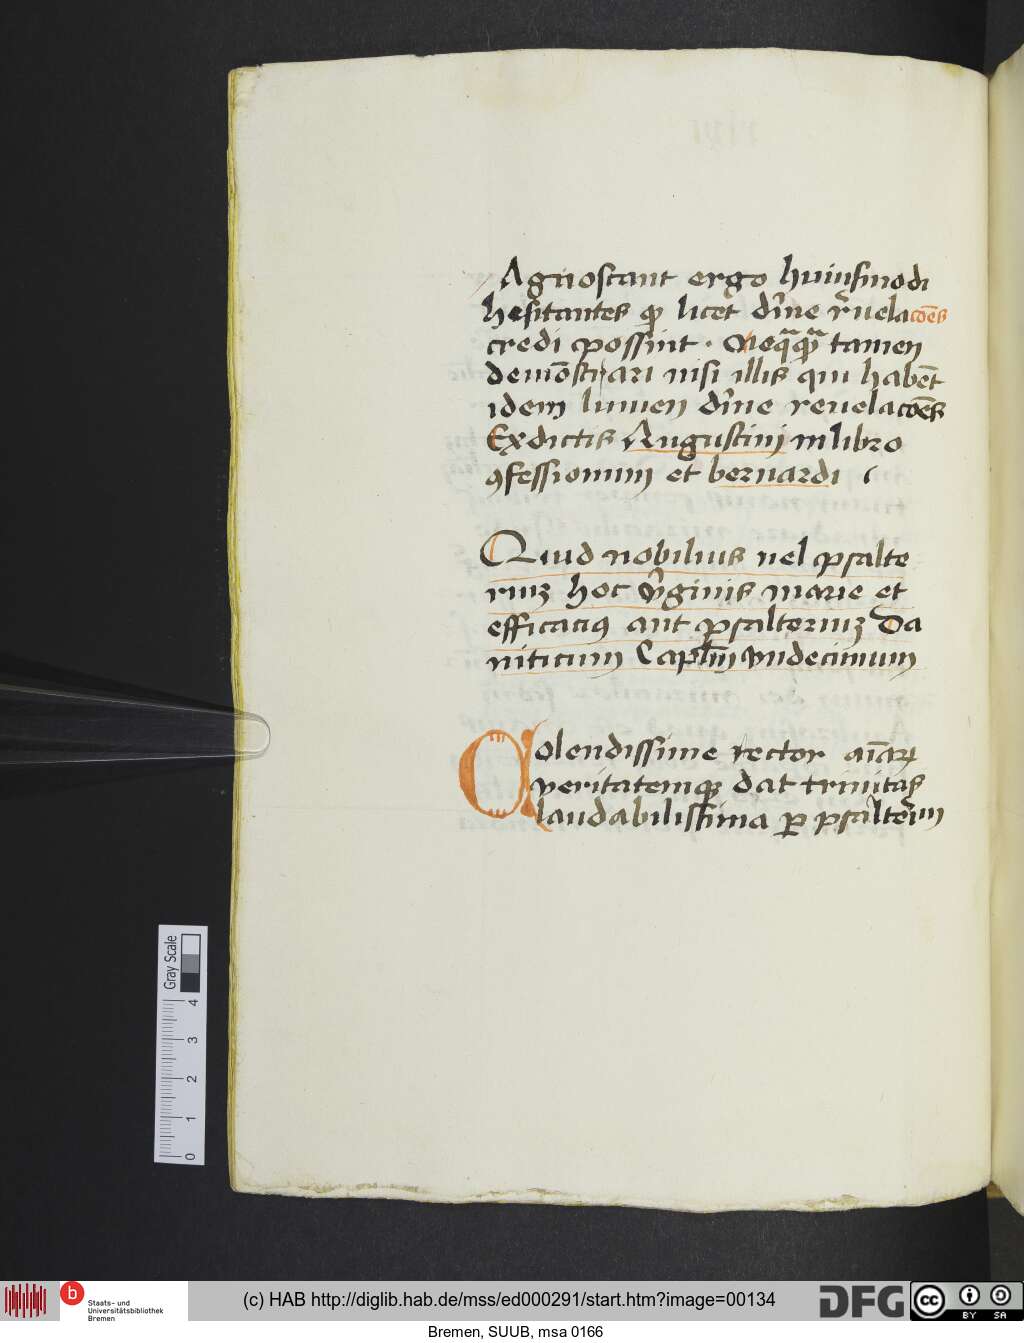 Agnoscant ergo huiusmodi
hesitantes ꝙ licet diīne r̄uelacōēs
credi possint · Neq̄q̄ꝙ tamen
demōstrari nisi illis qui habēt
idem lumen diīne reuelacōēs
Ex dictis Augustini in libro
ꝯfessionum et bernardi
Quid nobilius uel psalte
riuʒ hoc v̄ginis marie et
efficaciꝰ aut psalteriuʒ Da
uiticum Capl̄m vndecimum
Colendissime rector aīaꝝ
veritatemqꝫ dat trinitas
laudabilissima ꝑ psal̄teriūm
Gray Scale
0 1 2 3 4
b Staats- und
Universitätsbibliothek
Bremen
(c) HAB http://diglib.hab.de/mss/ed000291/start.htm?image=00134
DFG
cc BY SA
Bremen, SUUB, msa 0166